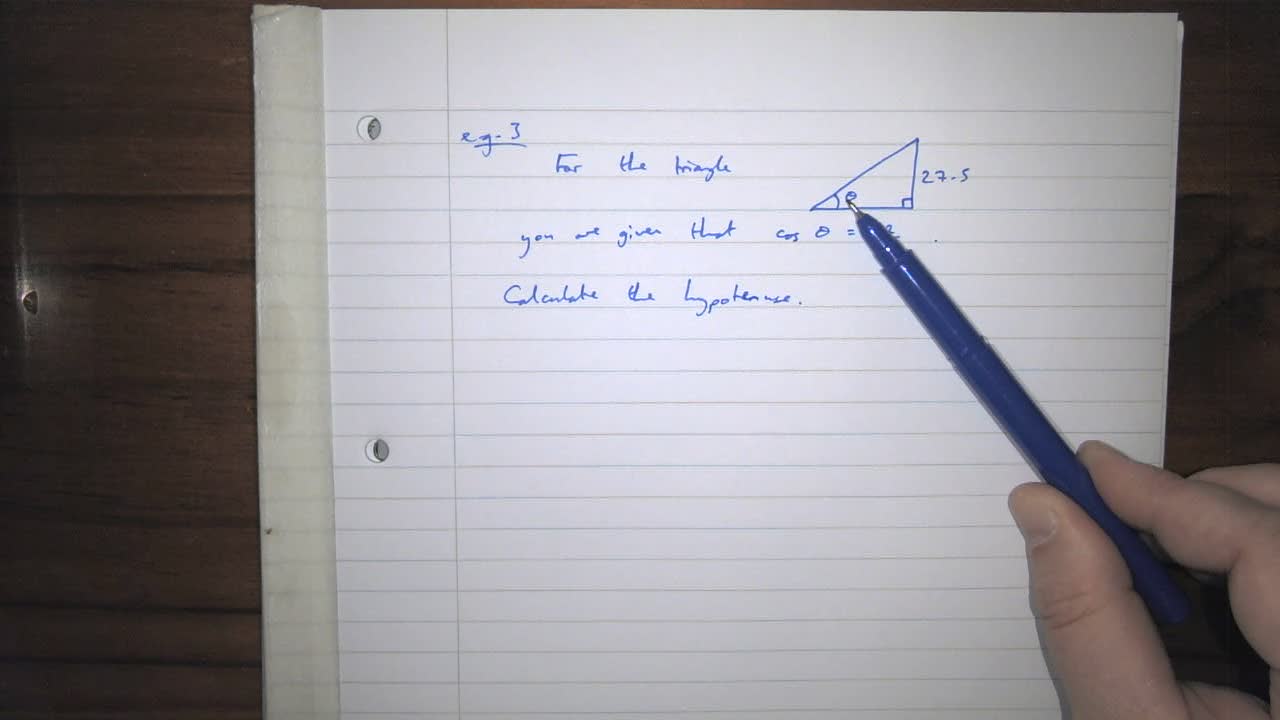 e.g. 3
For the triangle
27.5
θ
you are given that cos θ =
Calculate the hypotenuse.